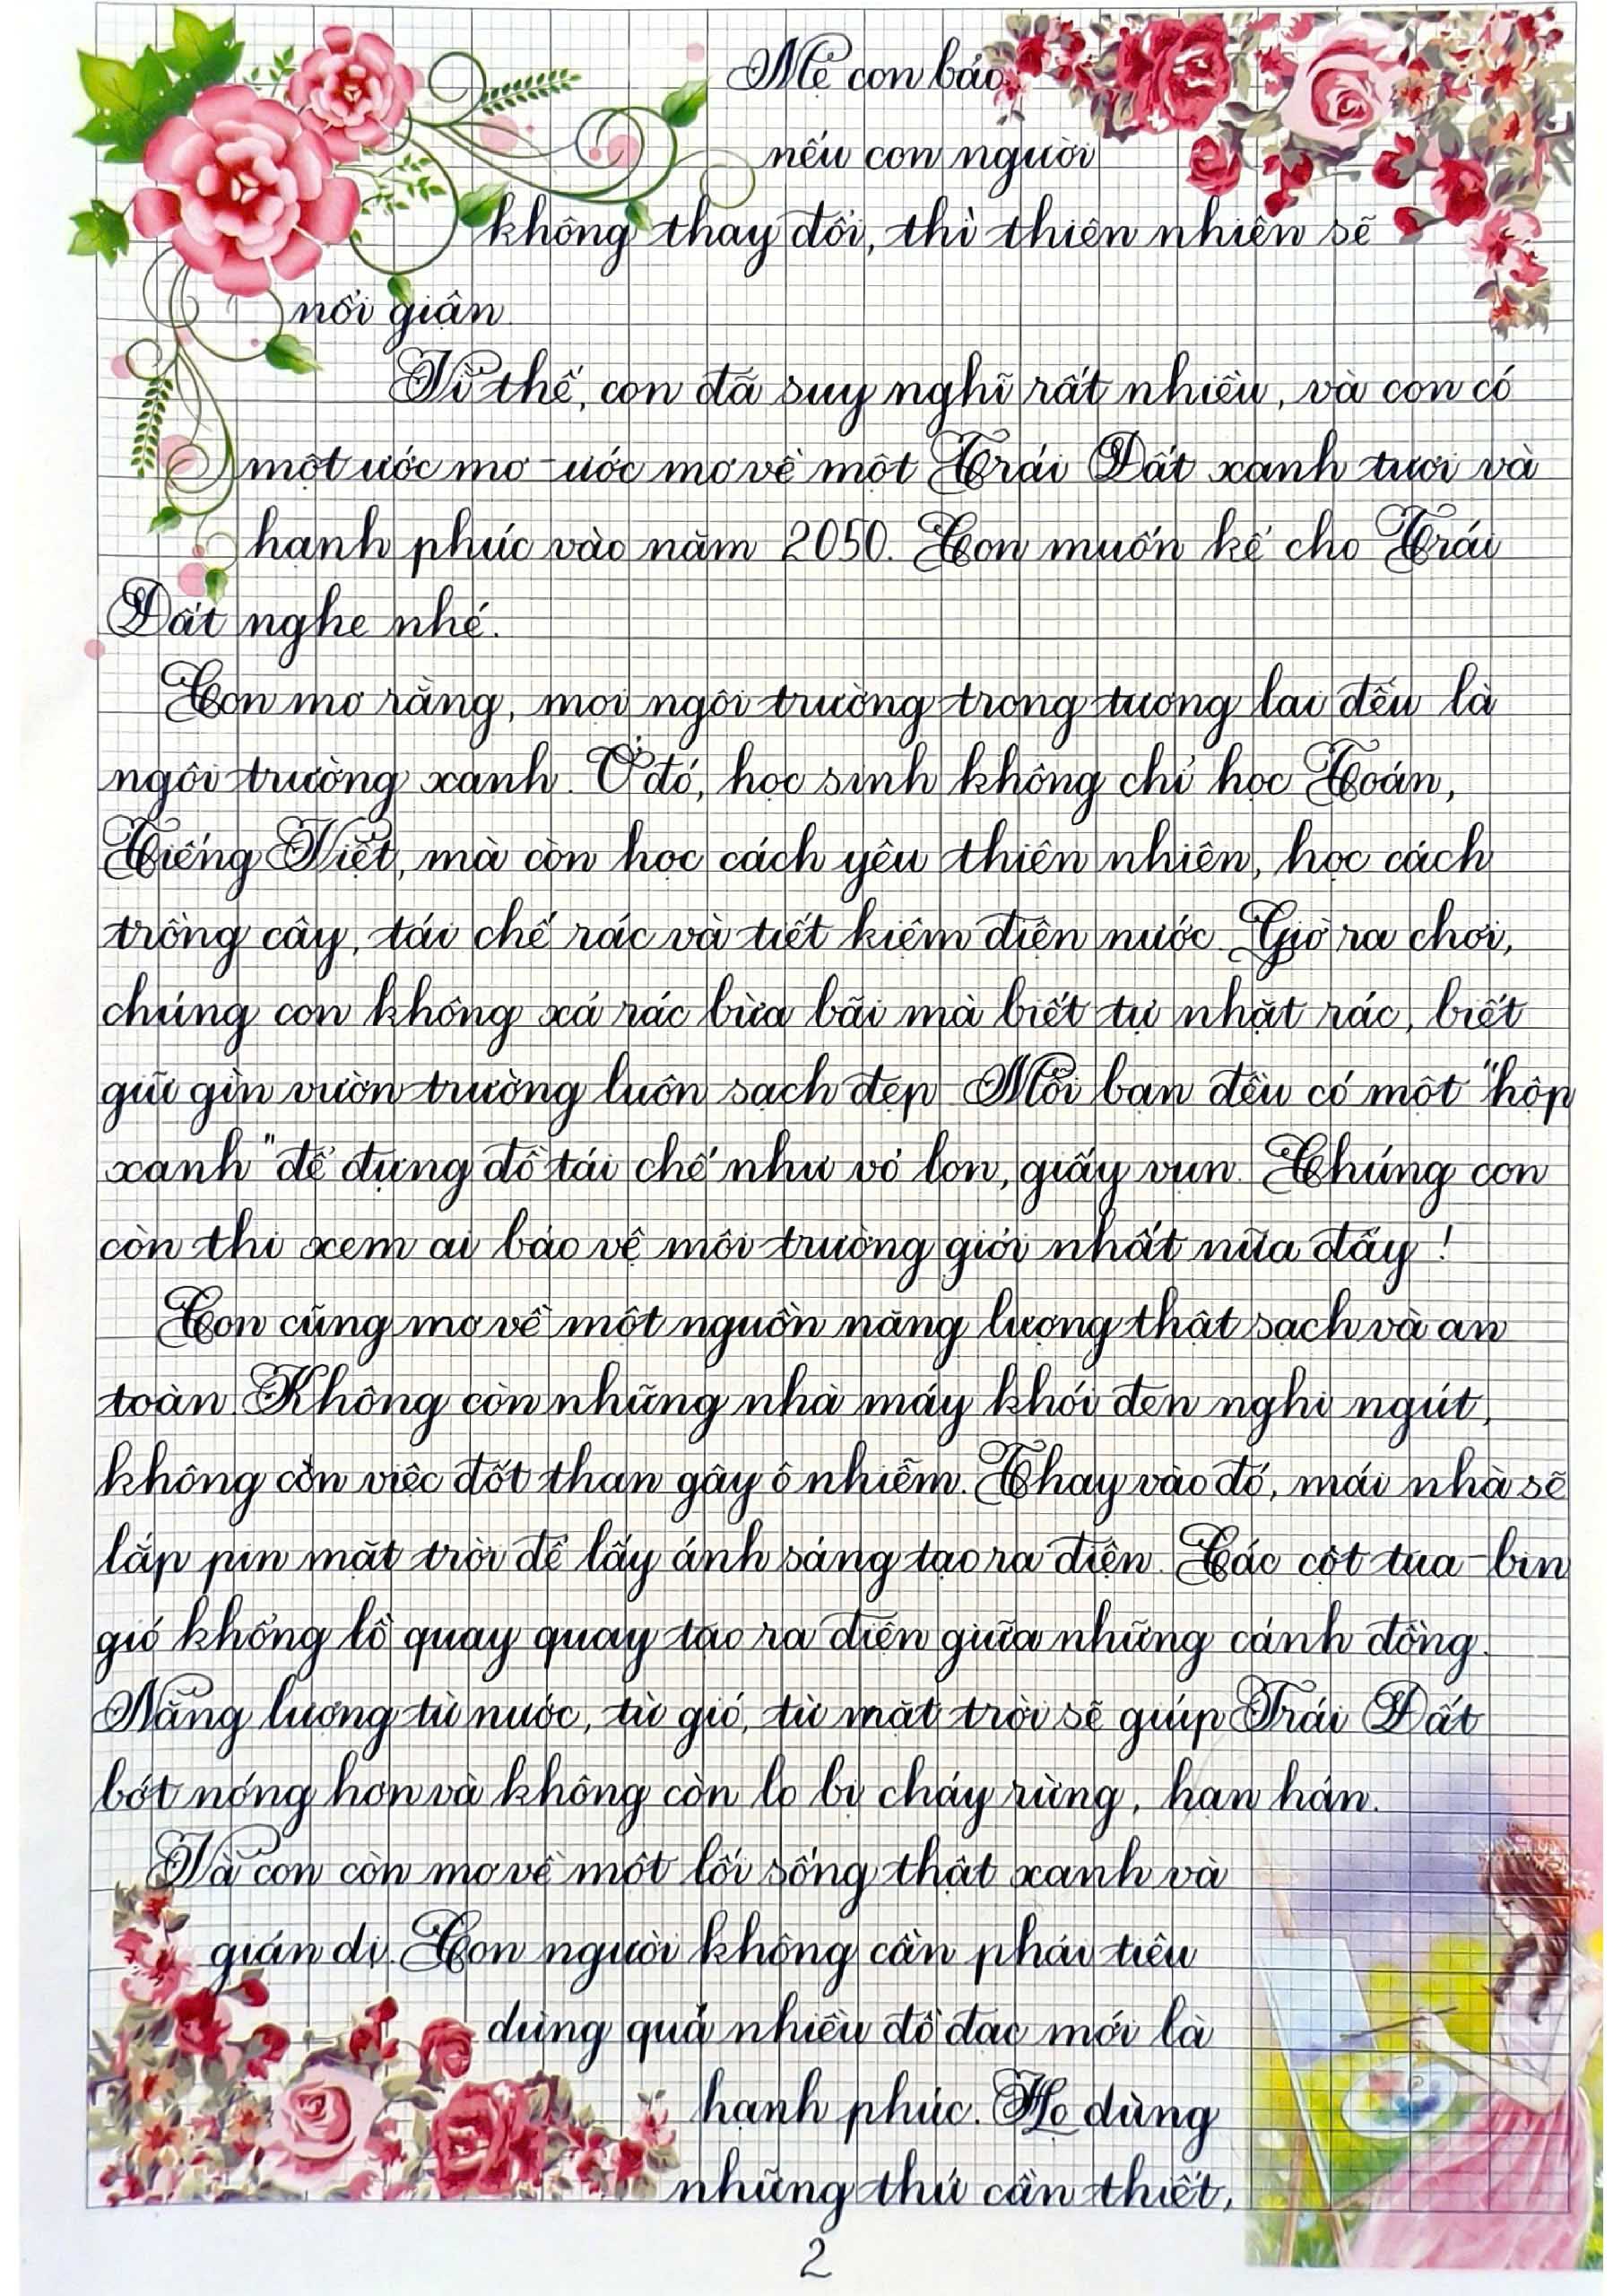 Mẹ con bảo
nếu con người
không thay đổi, thì thiên nhiên sẽ
nổi giận.
Vì thế, con đã suy nghĩ rất nhiều, và con có
một ước mơ - ước mơ về một Trái Đất xanh tươi và
hạnh phúc vào năm 2050. Con muốn kể cho Trái
Đất nghe nhé.
Con mơ rằng, mọi ngôi trường trong tương lai đều là
ngôi trường xanh. Ở đó, học sinh không chỉ học Toán,
Tiếng Việt, mà còn học cách yêu thiên nhiên, học cách
trồng cây, tái chế rác và tiết kiệm điện nước. Giờ ra chơi,
chúng con không xả rác bừa bãi mà biết tự nhặt rác, biết
giữ gìn vườn trường luôn sạch đẹp. Mỗi bạn đều có một "hộp
xanh" để đựng đồ tái chế như vỏ lon, giấy vụn. Chúng con
còn thi xem ai bảo vệ môi trường giỏi nhất nữa đấy !
Con cũng mơ về một nguồn năng lượng thật sạch và an
toàn. Không còn những nhà máy khói đen nghi ngút,
không còn việc đốt than gây ô nhiễm. Thay vào đó, mái nhà sẽ
lắp pin mặt trời để lấy ánh sáng tạo ra điện. Các cột tua-bin
gió khổng lồ quay quay tạo ra điện giữa những cánh đồng.
Năng lượng từ nước, từ gió, từ mặt trời sẽ giúp Trái Đất
bớt nóng hơn và không còn lo bị cháy rừng, hạn hán.
Và con còn mơ về một lối sống thật xanh và
giản dị. Con người không cần phải tiêu
dùng quá nhiều đồ đạc mới là
hạnh phúc. Họ dùng
những thứ cần thiết,
2